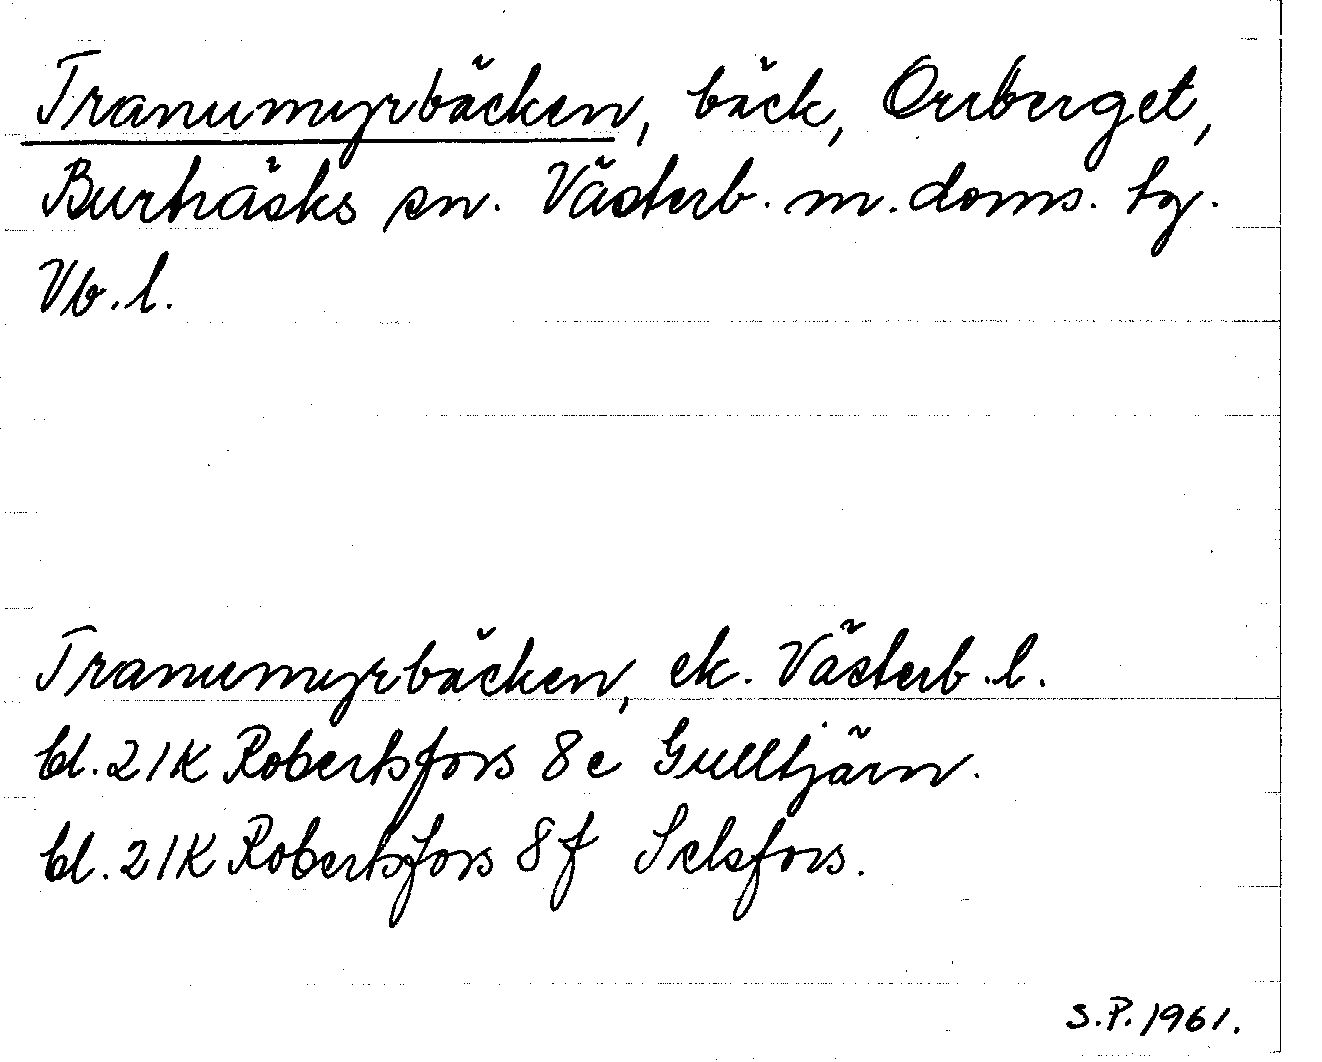 Tranumyrbäcken, bäck, Orrberget,
Burträsks sn. Västerb. m. doms. tg.
Vb. l.
Tranumyrbäcken, ek. Västerb. l.
bl. 21K Robertsfors 8e Gulltjärn.
bl. 21K Robertsfors 8f Selsfors.
S.P. 1961.